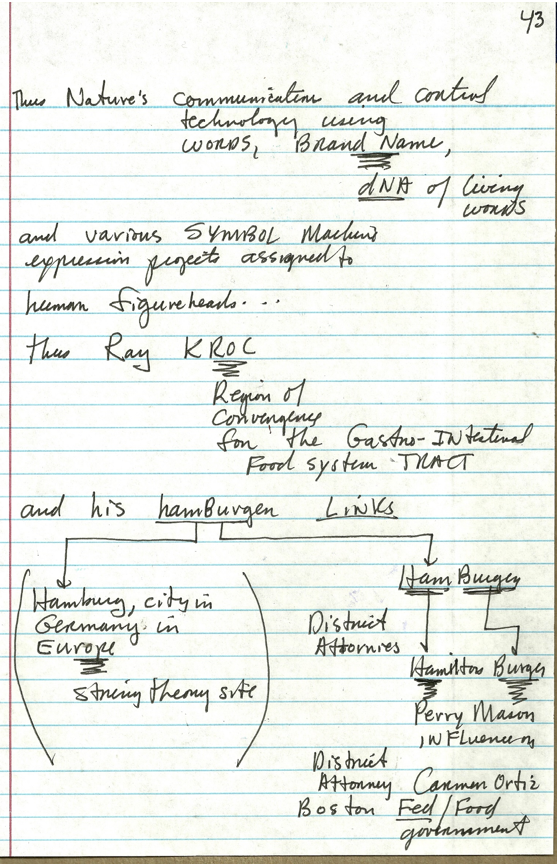 43
Thus Nature's communication and control
technology using
WORDS, Brand Name,
dNA of living
words
and various SYMBOL Machine
expression projects assigned to
human figureheads...
thus Ray KROC
Region of
Convergence
for the Gastro-INtestinal
Food system TRACT
and his hamBurger LINKS
Hamburg, city in
Germany in
Europe
string theory site
Ham Burger
District
Attornies
Hamilton Burger
Perry Mason
INFluence on
District
Attorney Carmen Ortiz
Boston Fed/Food
government